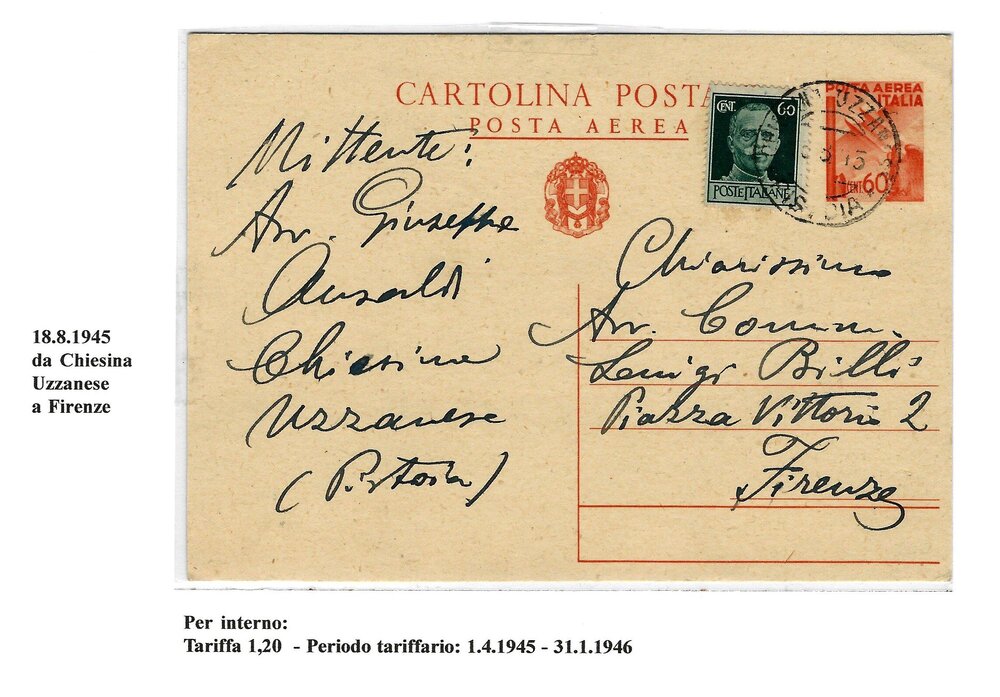 CARTOLINA POSTA
POSTA AEREA
CENT. 60
POSTE ITALIANE
POSTA AEREA
ITALIA
CENT 60
UZZAN
Mittente:
Avv. Giuseppe
Ansaldi
Chiesina
Uzzanese
(Pistoia)
Chiarissimo
Avv. Comm.
Luigi Billi
Piazza Vittorio 2
Firenze
18.8.1945
da Chiesina
Uzzanese
a Firenze
Per interno:
Tariffa 1,20 - Periodo tariffario: 1.4.1945 - 31.1.1946